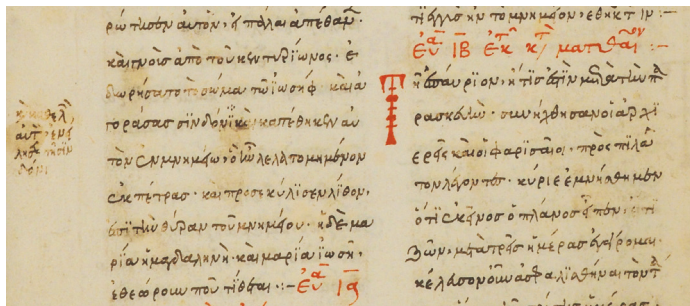 ρώτησεν αὐτὸν, εἰ πάλαι ἀπέθαν
καὶ γνοὺς ἀπὸ τοῦ κεντυρίωνος· ἐ
δωρήσατο τὸ σῶμα τῶ ἰωσήφ· καὶ ἀ
γοράσας σϊνδόνϊ καὶ κατέθηκεν αὐ
τὸν ἐν μνημείω, ὃ ἦν λελατομημένον
ἐκ πέτρας· καὶ προσεκύλισεν λίθον,
ἐπὶ τὴν θύραν τοῦ μνημείου· ἡ δὲ μα
ρία ἡ μαγδαληνὴ· καὶ μαρία ἰωσῆ,
ἐθεώρουν ποῦ τίθεται :-
καὶ καθελ
αὐτ ἐνεί
λησε τῆ σιν
δόνι
τι ἐγγὺς ἦν τὸ μνημεῖον, ἔθηκ τ ιν :-
Εὐα ΙΒ ἐκ τ κ/ ματθαῖον :-
Τῆ ἐπαύριον, ἥτις ἐστὶν μετὰ τὴν πα
ρασκευὴν· συνήχθησαν οἱ ἀρχι
ερεῖς καὶ οἱ φαρισαῖοι· πρὸς πιλᾶ
τον λέγοντες· κύριε ἐμνήσθημεν
ὅτι ἐκεῖνος ὁ πλάνος εἶπεν, ἔτι
ζῶν, μετὰ τρεῖς ἡμέρας ἐγείρομαι·
κέλευσον οὖν ἀσφαλισθῆναι τὸν τ